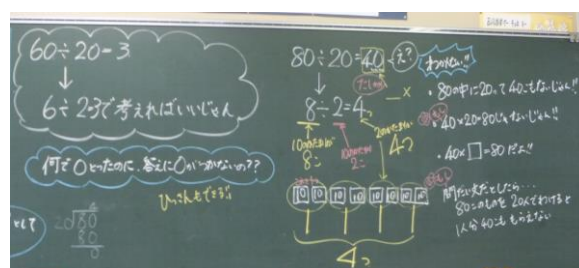 60÷20=3
↓
6÷2=3で考えればいいじゃん
何で0とったのに、答えに0がつかないの??
ひっさんもできる!!
として
4
20)80
80
0
80÷20=40
え?
↓
8÷2=4
10のたばが
8こ
10のたばが
2こ
4つ
10 10 10 10 10 10 10 10
4つ
・80の中に20って40こもないじゃん!!
・40×20=80じゃないじゃん!!
・40×□=80だよ!!
間だい文だとしたら…
80このものを20人でわけると
1人分40こももらえない